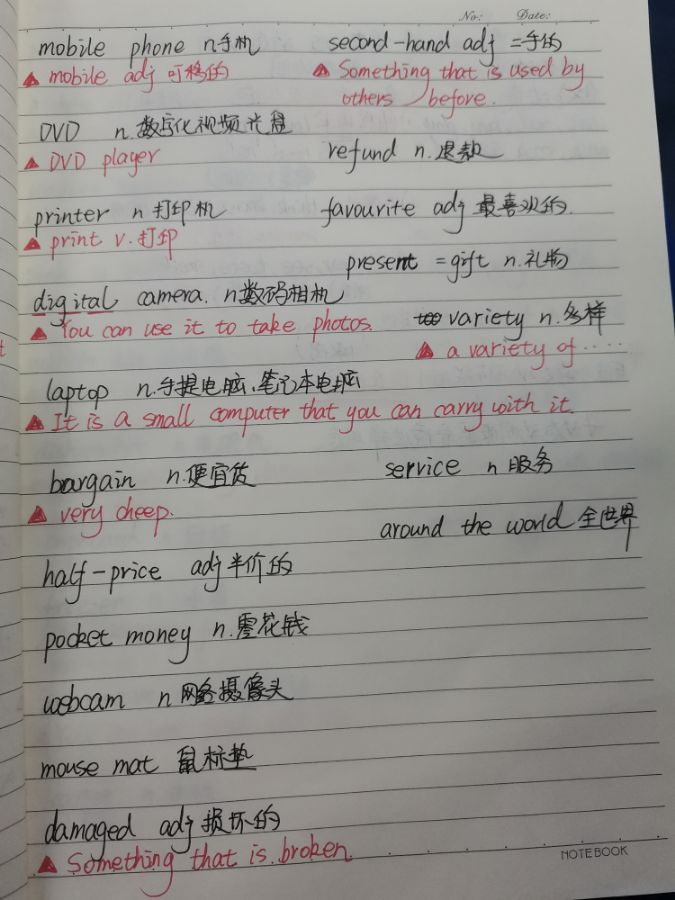 No: Date:
mobile phone n手机
▲ mobile adj 可移的
DVD n.数字化视频光盘
▲ DVD player
printer n打印机
▲ print v.打印
digital camera. n数码相机
▲ You can use it to take photos.
laptop n.手提电脑、笔记本电脑
▲ It is a small computer that you can carry with it.
bargain n.便宜货
▲ very cheep.
half-price adj半价的
pocket money n.零花钱
webcam n网络摄像头
mouse mat 鼠标垫
damaged adj损坏的
▲ Something that is broken.
second-hand adj 二手的
▲ Something that is used by
others before.
refund n.退款
favourite adj最喜欢的.
present =gift n.礼物
variety n.多样
▲ a variety of ·····
service n服务
around the world全世界
NOTEBOOK